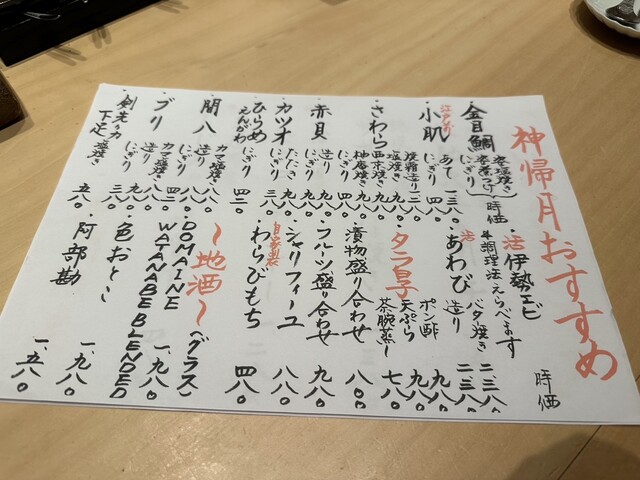 神帰月おすすめ
・金目鯛
姿塩焼き
姿煮つけ
にぎり
時価
江戸前
・小肌
あて 一、三八〇
にぎり 四八〇
・さわら
塩焼き 九八〇
西京焼き 九八〇
柚庵焼き 九八〇
にぎり 四八〇
・赤貝
造り 九八〇
にぎり
・カツオ
たたき 九八〇
にぎり 三八〇
・ひらめ
えんがわ
にぎり 四二〇
・間八
造り 八八〇
にぎり
カマ塩焼き
・ブリ
造り
にぎり
カマ塩焼き
・剣先イカ
にぎり 三八〇
下足 塩焼き 五八〇
・活伊勢エビ
※調理法えらべます
時価
活
・あわび
バター焼き 二、三八〇
造り 二、三八〇
・タラ白子
ポン酢 九八〇
天ぷら 九八〇
茶腕蒸し 七八〇
・漬物盛り合わせ 八〇〇
・フルーツ盛り合わせ 九八〇
・シャリフィーユ 八八〇
自家製
・わらびもち 四八〇
〜地酒〜(グラス)
・DOMAINE WATANABE BLENDED 一、九八〇
・色おとこ 一、九八〇
・阿部勘 一、五八〇